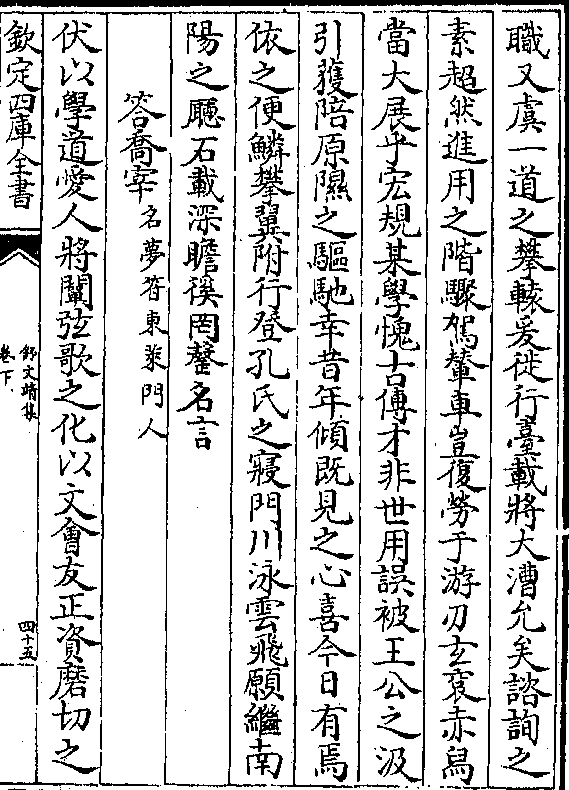 職又虞一道之攀轅爰徙行臺載將大漕允矣諮詢之
素超然進用之階驟駕輦車豈復勞于游刃玄衮赤舄
當大展乎宏規某學愧古傳才非世用誤被王公之汲
引獲陪原隰之驅馳幸昔年傾既見之心喜今日有焉
依之便鱗攀翼附行登孔氏之寢門川泳雲飛願繼南
陽之廳石載深瞻徯罔罄名言
答喬宰名夢符東萊門人
伏以學道愛人將闡弦歌之化以文會友正資磨切之
欽定四庫全書
舒文靖集
卷下
四十五